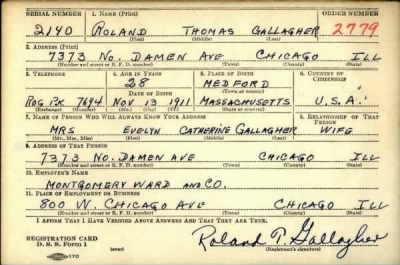 SERIAL NUMBER 1. NAME (Print) ORDER NUMBER
2140 ROLAND THOMAS GALLAGHER 2779
(First) (Middle) (Last)
2. ADDRESS (Print)
7373 NO. DAMEN AVE CHICAGO ILL
(Number and street or R. F. D. number) (Town) (County) (State)
3. TELEPHONE 4. AGE IN YEARS 5. PLACE OF BIRTH 6. COUNTRY OF CITIZENSHIP
28 MEDFORD
DATE OF BIRTH (Town or county)
ROG. PK 7694 NOV 13 1911 MASSACHUSETTS U.S.A.
(Exchange) (Number) (Mo.) (Day) (Yr.) (State or country)
7. NAME OF PERSON WHO WILL ALWAYS KNOW YOUR ADDRESS 8. RELATIONSHIP OF THAT PERSON
MRS EVELYN CATHERINE GALLAGHER WIFE
(Mr., Mrs., Miss) (First) (Middle) (Last)
9. ADDRESS OF THAT PERSON
7373 NO. DAMEN AVE CHICAGO ILL
(Number and street or R. F. D. number) (Town) (County) (State)
10. EMPLOYER'S NAME
MONTGOMERY WARD AND CO.
11. PLACE OF EMPLOYMENT OR BUSINESS
800 W. CHICAGO AVE CHICAGO ILL
(Number and street or R. F. D. number) (Town) (County) (State)
I AFFIRM THAT I HAVE VERIFIED ABOVE ANSWERS AND THAT THEY ARE TRUE.
REGISTRATION CARD
D. S. S. Form 1 (over) Roland T. Gallagher
(Registrant's signature)